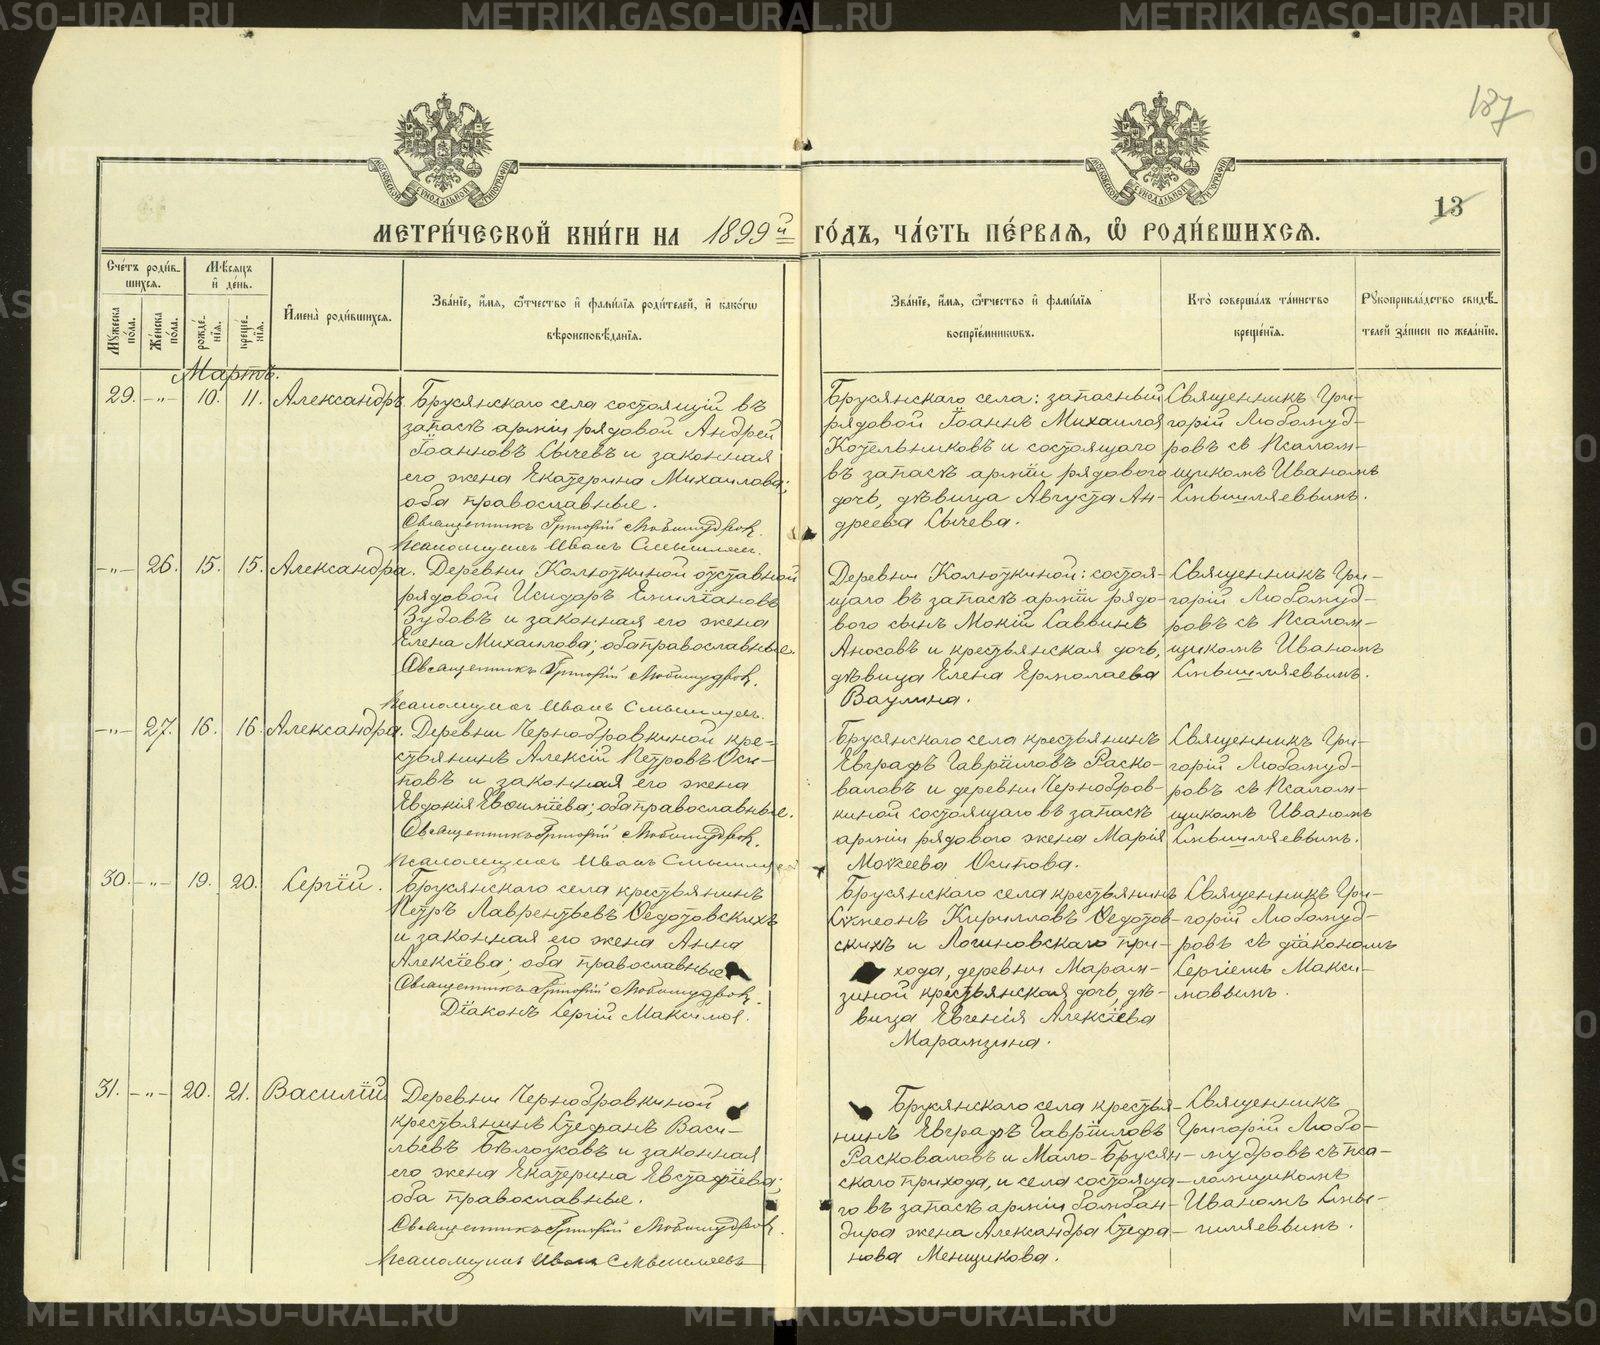 METRIKI.GASO-URAL.RU
187
13
МОСКОВСКОЙ СѴНОДАЛЬНОЙ ТИПОГРАФІИ
МОСКОВСКОЙ СѴНОДАЛЬНОЙ ТИПОГРАФІИ
МЕТРИ́ЧЕСКОЙ КНИ́ГИ НА 1899й ГО́ДЪ, ЧА́СТЬ ПЕ́РВАЯ, Ѡ҆ РОДИ́ВШИХСЯ.
Сче́тъ роди́в-
шихся.
Му́жеска
по́ла.
Же́нска
по́ла.
Мѣ́сяцъ
и҆ де́нь.
рожде́-
нія.
креще́-
нія.
И҆мена̀ роди́вшихся.
Зва́нїе, и҆́мя, ѻ҆́тчество и҆ фами́лїя роди́телей, и҆ како́гѡ
вѣроисповѣ́данїя.
Зва́нїе, и҆́мя, ѻ҆́тчество и҆ фами́лїя
воспрїе́мниковъ.
Кто̀ соверша́лъ та́инство
креще́нїя.
Рꙋкоприкла́дство свидѣ́-
телей за́писи по жела́нїю.
Мартъ.
29. -„- 10. 11. Александръ.
Брусянскаго села состоящій въ
запасѣ арміи рядовой Андрей
Іоанновъ Сычевъ и законная
его жена Екатерина Михаилова;
оба православные.
Священникъ Григорій Любомудровъ.
Псаломщикъ Иванъ Смышляевъ.
Брусянскаго села: запасный
рядовой Іоаннъ Михаиловъ
Котельниковъ и состоящаго
въ запасѣ арміи рядового
дочь, дѣвица Августа Ан-
дреева Сычева.
Священникъ Гри-
горій Любомуд-
ровъ съ Псалом-
щикомъ Иваномъ
Смышляевымъ.
-„- 26. 15. 15. Александра.
Деревни Колюткиной отставной
рядовой Исидоръ Емиліановъ
Зудовъ и законная его жена
Елена Михаилова; оба православные.
Священникъ Григорій Любомудровъ.
Псаломщикъ Иванъ Смышляевъ.
Деревни Колюткиной: состоя-
щаго въ запасѣ арміи рядо-
вого сынъ Мокій Саввинъ
Аносовъ и крестьянская дочь,
дѣвица Елена Ермолаева
Ваулина.
Священникъ Гри-
горій Любомуд-
ровъ съ Псалом-
щикомъ Иваномъ
Смышляевымъ.
-„- 27. 16. 16. Александра.
Деревни Чернобровкиной кре-
стьянинъ Алексій Петровъ Оси-
повъ и законная его жена
Евдокія Евѳиміева; оба православные.
Священникъ Григорій Любомудровъ.
Псаломщикъ Иванъ Смышляевъ
Брусянскаго села крестьянинъ
Евграфъ Гавріиловъ Раско-
валовъ и деревни Чернобров-
киной состоящаго въ запасѣ
арміи рядового жена Марія
Моѵсеева Осипова.
Священникъ Гри-
горій Любомуд-
ровъ съ Псалом-
щикомъ Иваномъ
Смышляевымъ.
30. -„- 19. 20. Сергій.
Брусянскаго села крестьянинъ
Петръ Лаврентьевъ Ѳедотовскихъ
и законная его жена Анна
Алексіева; оба православные
Священникъ Григорій Любомудровъ.
Діаконъ Сергій Максимовъ.
Брусянскаго села крестьянинъ
Сѵмеонъ Кирилловъ Ѳедотов-
скихъ и Логиновскаго при-
хода, деревни Марам-
зиной крестьянская дочь, дѣ-
вица Евгенія Алексіева
Марамзина.
Священникъ Гри-
горій Любомуд-
ровъ съ діакономъ
Сергіемъ Макси-
мовымъ.
31. -„- 20. 21. Василій
Деревни Чернобровкиной
крестьянинъ Стефанъ Васи-
льевъ Бѣлоусовъ и законная
его жена Екатерина Евстафіева;
оба православные.
Священникъ Григорій Любомудровъ.
Псаломщикъ Иванъ Смышляевъ
Брусянскаго села крестья-
нинъ Евграфъ Гавріиловъ
Расковаловъ и Мало-Брусян-
скаго прихода, и села состояща-
го въ запасѣ арміи бомбан-
дира жена Александра Стефа-
нова Менщикова.
Священникъ
Григорій Любо-
мудровъ съ пса-
ломщикомъ
Иваномъ Смы-
шляевымъ.
METRIKI.GASO-URAL.RU